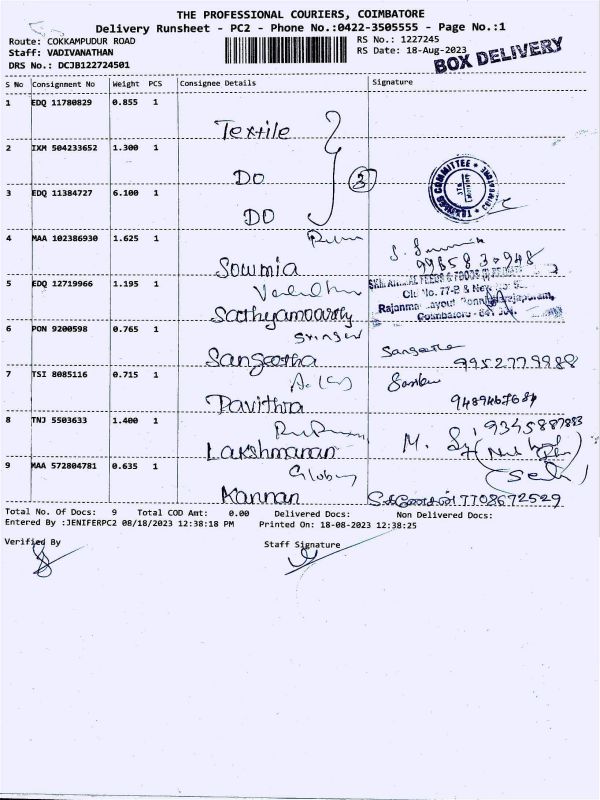 THE PROFESSIONAL COURIERS, COIMBATORE
Delivery Runsheet - PC2 - Phone No.:0422-3505555 - Page No.:1
Route: COKKAMPUDUR ROAD
RS No.: 1227245
Staff: VADIVANATHAN
RS Date: 18-Aug-2023
DRS No.: DCJB122724501
BOX DELIVERY
S No Consignment No Weight PCS Consignee Details Signature
1 EDQ 11780829 0.855 1
Textile
2 IXM 504233652 1.300 1
DO
3
COMMITTEE
3 EDQ 11384727 6.100 1
DO
4 MAA 102386930 1.625 1
Sowmia
5 EDQ 12719966 1.195 1
Sathyamoorthy
Coimbatore - 641
6 PON 9200598 0.765 1
Sangeetha
Sangeetha
9952779988
7 TSI 8085116 0.715 1
Pavithra
8 TNJ 5503633 1.400 1
Lakshmanan
M.
9 MAA 572804781 0.635 1
Kannan
7708672529
Total No. Of Docs: 9 Total COD Amt: 0.00 Delivered Docs: Non Delivered Docs:
Entered By :JENIFERPC2 08/18/2023 12:38:18 PM Printed On: 18-08-2023 12:38:25
Verified By Staff Signature